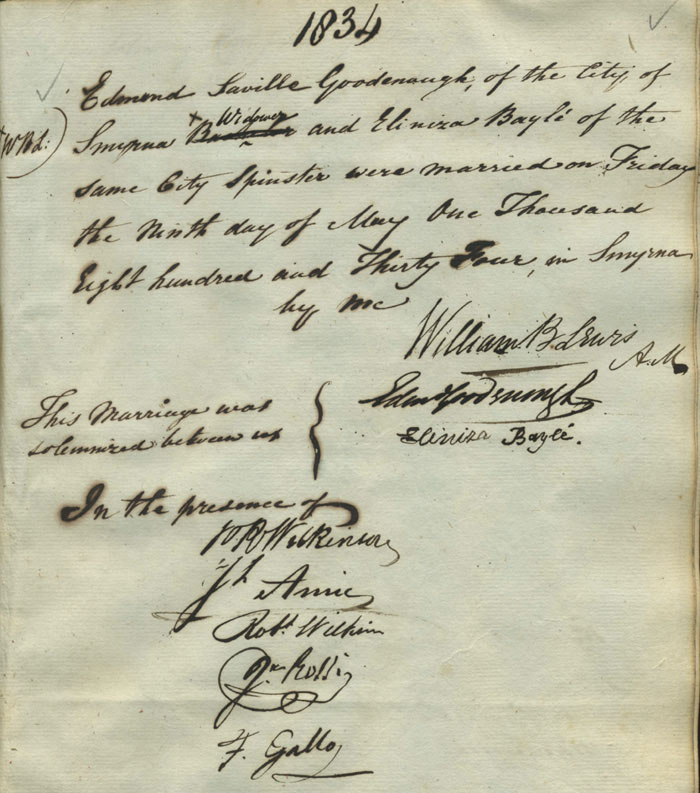 1834
Edmond Saville Goodenough, of the City of
+ Widower
Smyrna Bachelor and Eliniza Baylé of the
+WBL:
same City Spinster were married on Friday
the Ninth day of May One Thousand
Eight hundred and Thirty Four, in Smyrna
by me
William B Lewis
A.M
Edm Goodenough
This Marriage was
solemnized between us
Eliniza Baylé.
In the presence of
Wilkinson
Robt Wilkin
F. Gallo